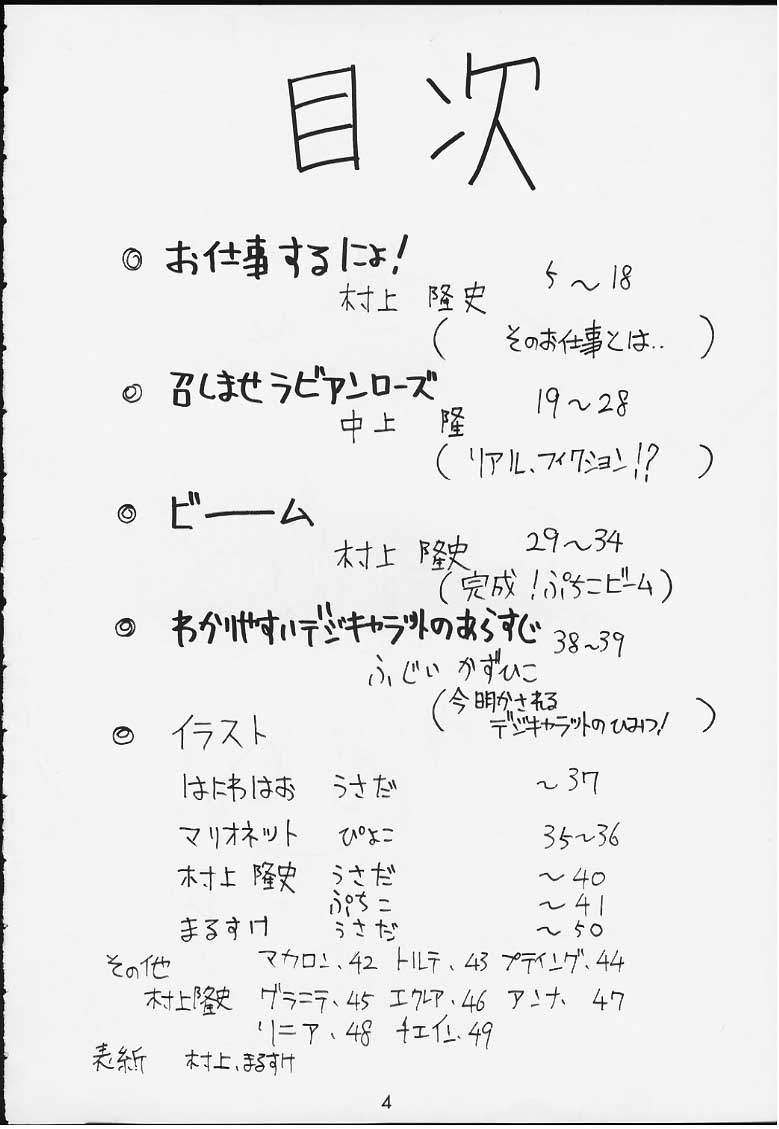 目次
◎ お仕事するにょ! 5〜18
村上 隆史
(そのお仕事とは..)
◎ 召しませラビアンローズ 19〜28
中上 隆
(リアル、フィクション!?)
◎ ビーーム
村上 隆史 29〜34
(完成!ぷちこビーム)
◎ わかりやすいデジキャラットのあらすじ 38〜39
ふじい かずひこ
(今明かされる
デジキャラットのひみつ!)
◎ イラスト
はにわはお うさだ 〜37
マリオネット ぴよこ 35〜36
村上 隆史 うさだ 〜40
ぷちこ 〜41
まるすけ うさだ 〜50
その他 マカロン、42 トルテ、43 プティング、44
村上隆史 グラニテ、45 エクレア、46 アンナ、47
リニア、48 チェイン、49
表紙 村上、まるすけ
4